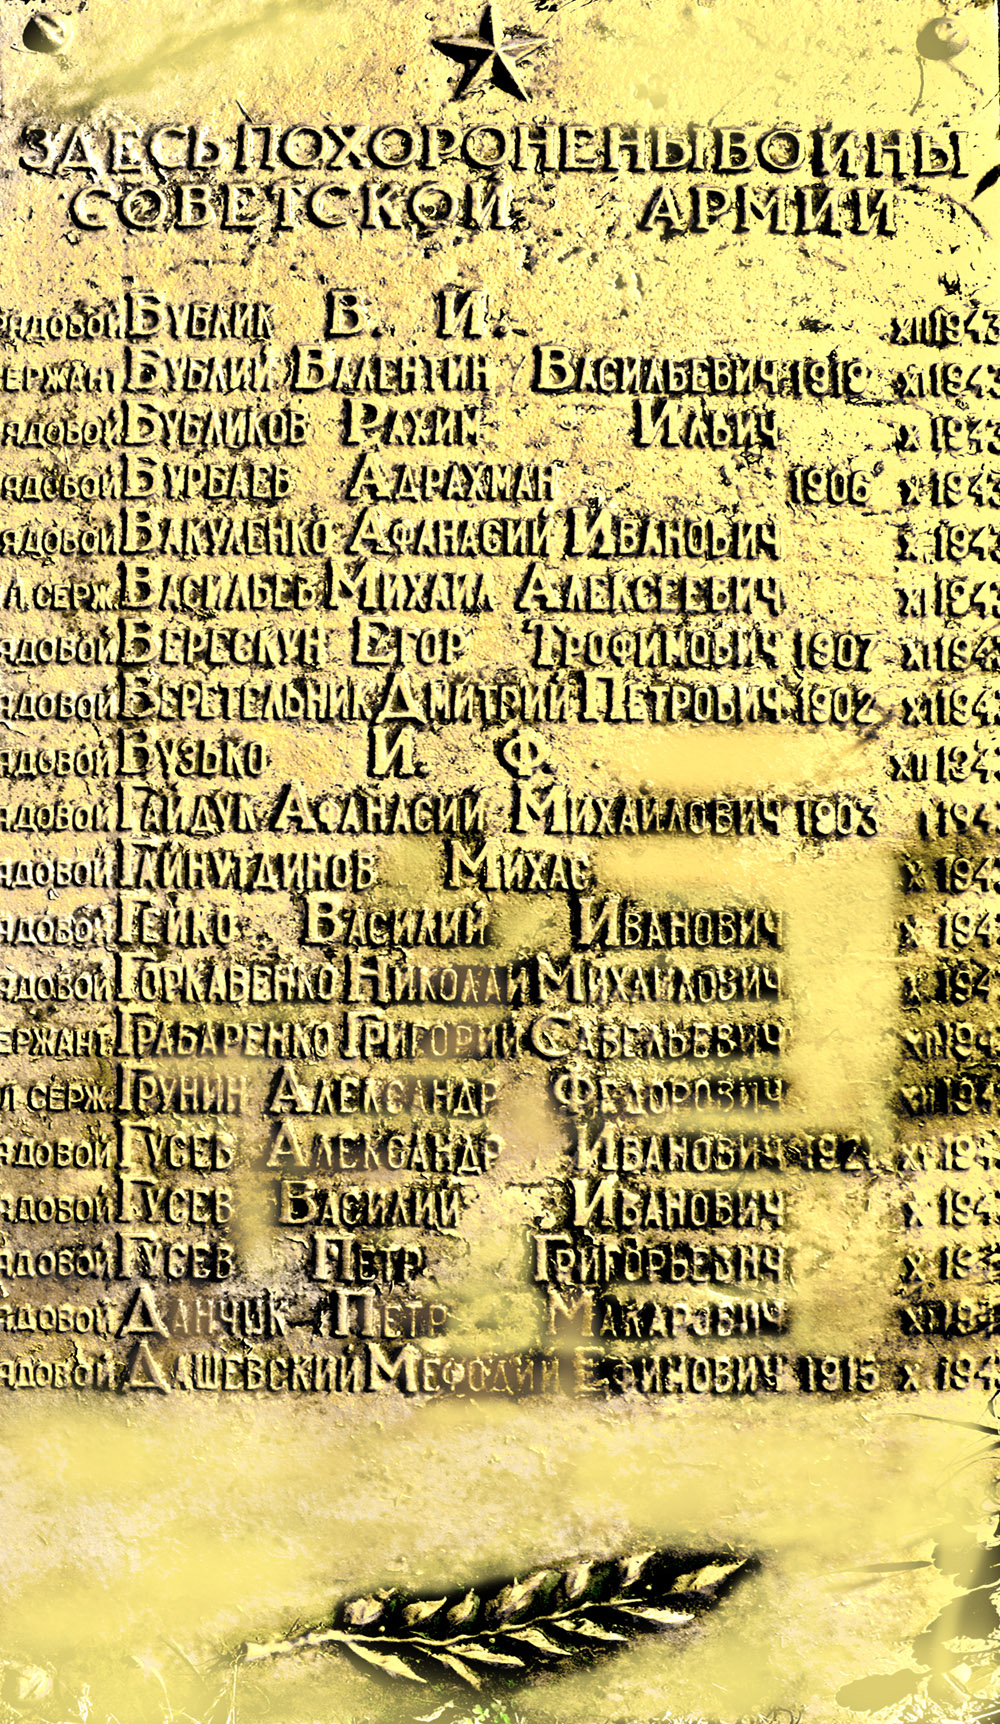 ЗДЕСЬ ПОХОРОНЕНЫ ВОИНЫ
СОВЕТСКОЙ АРМИИ
РЯДОВОЙ БУБЛИК В. И. XII 1943
СЕРЖАНТ БУБЛИЙ ВАЛЕНТИН ВАСИЛЬЕВИЧ 1919 XI 1943
РЯДОВОЙ БУБЛИКОВ РАХИМ ИЛЬИЧ X 1943
РЯДОВОЙ БУРБАЕВ АДРАХМАН 1906 X 1943
РЯДОВОЙ ВАКУЛЕНКО АФАНАСИЙ ИВАНОВИЧ X 1943
МЛ СЕРЖ. ВАСИЛЬЕВ МИХАИЛ АЛЕКСЕЕВИЧ XI 1943
РЯДОВОЙ ВЕРЕСКУН ЕГОР ТРОФИМОВИЧ 1907 XI 194
РЯДОВОЙ ВЕРЕТЕЛЬНИК ДМИТРИЙ ПЕТРОВИЧ 1902 XI 194
РЯДОВОЙ ВУЗЬКО И. Ф. XII 1943
РЯДОВОЙ ГАЙДУК АФАНАСИЙ МИХАЙЛОВИЧ 1903 194
РЯДОВОЙ ГАЙНУТДИНОВ МИХАС X 194
РЯДОВОЙ ГЕЙКО ВАСИЛИЙ ИВАНОВИЧ X 194
РЯДОВОЙ ГОРКАВЕНКО НИКОЛАЙ МИХАЙЛОВИЧ X 194
СЕРЖАНТ ГРАБАРЕНКО ГРИГОРИЙ САВЕЛЬЕВИЧ XII 194
МЛ СЕРЖ. ГРУНИН АЛЕКСАНДР ФЕДОРОВИЧ XII 194
РЯДОВОЙ ГУСЕВ АЛЕКСАНДР ИВАНОВИЧ 1921 XI 194
РЯДОВОЙ ГУСЕВ ВАСИЛИЙ ИВАНОВИЧ X 194
РЯДОВОЙ ГУСЕВ ПЕТР ГРИГОРЬЕВИЧ X 194
РЯДОВОЙ ДАНЧУК ПЕТР МАКАРОВИЧ XI 194
РЯДОВОЙ ДАШЕВСКИЙ МЕФОДИЙ ЕФИМОВИЧ 1915 X 194